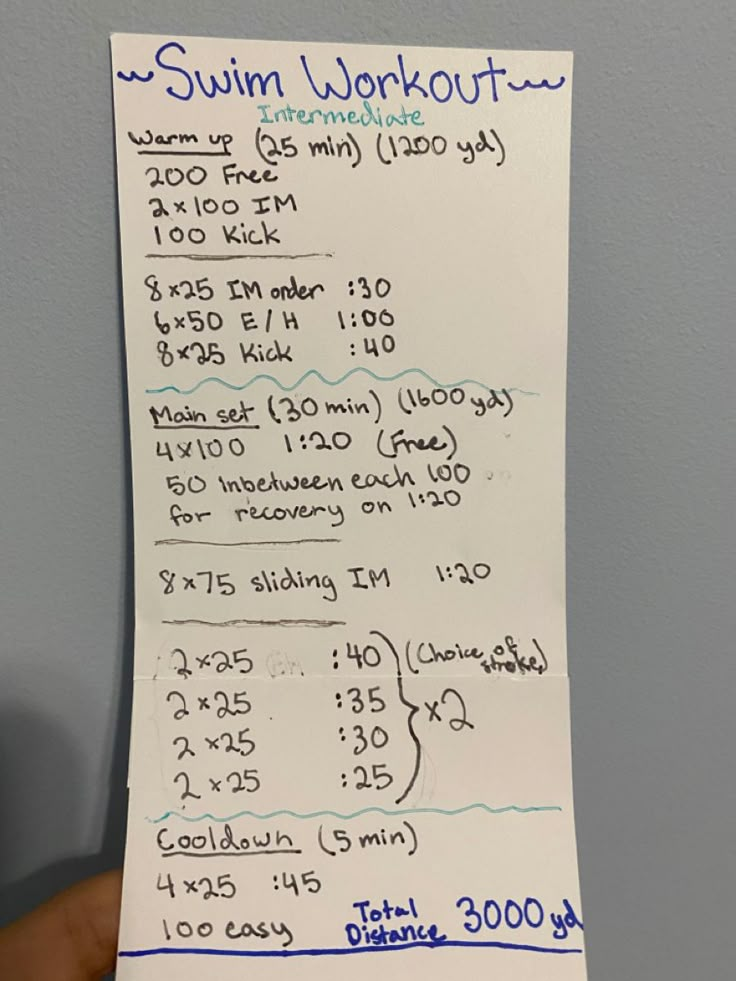 ~Swim Workout~
Intermediate
Warm up (25 min) (1200 yd)
200 Free
2×100 IM
100 Kick
8×25 IM order :30
6×50 E/H 1:00
8×25 Kick :40
Main set (30 min) (1600 yd)
4×100 1:20 (Free)
50 inbetween each 100
for recovery on 1:20
8×75 sliding IM 1:20
2×25 :40 (Choice of stroke)
2×25 :35
2×25 :30
2×25 :25
} ×2
Cooldown (5 min)
4×25 :45
100 easy
Total Distance 3000 yd